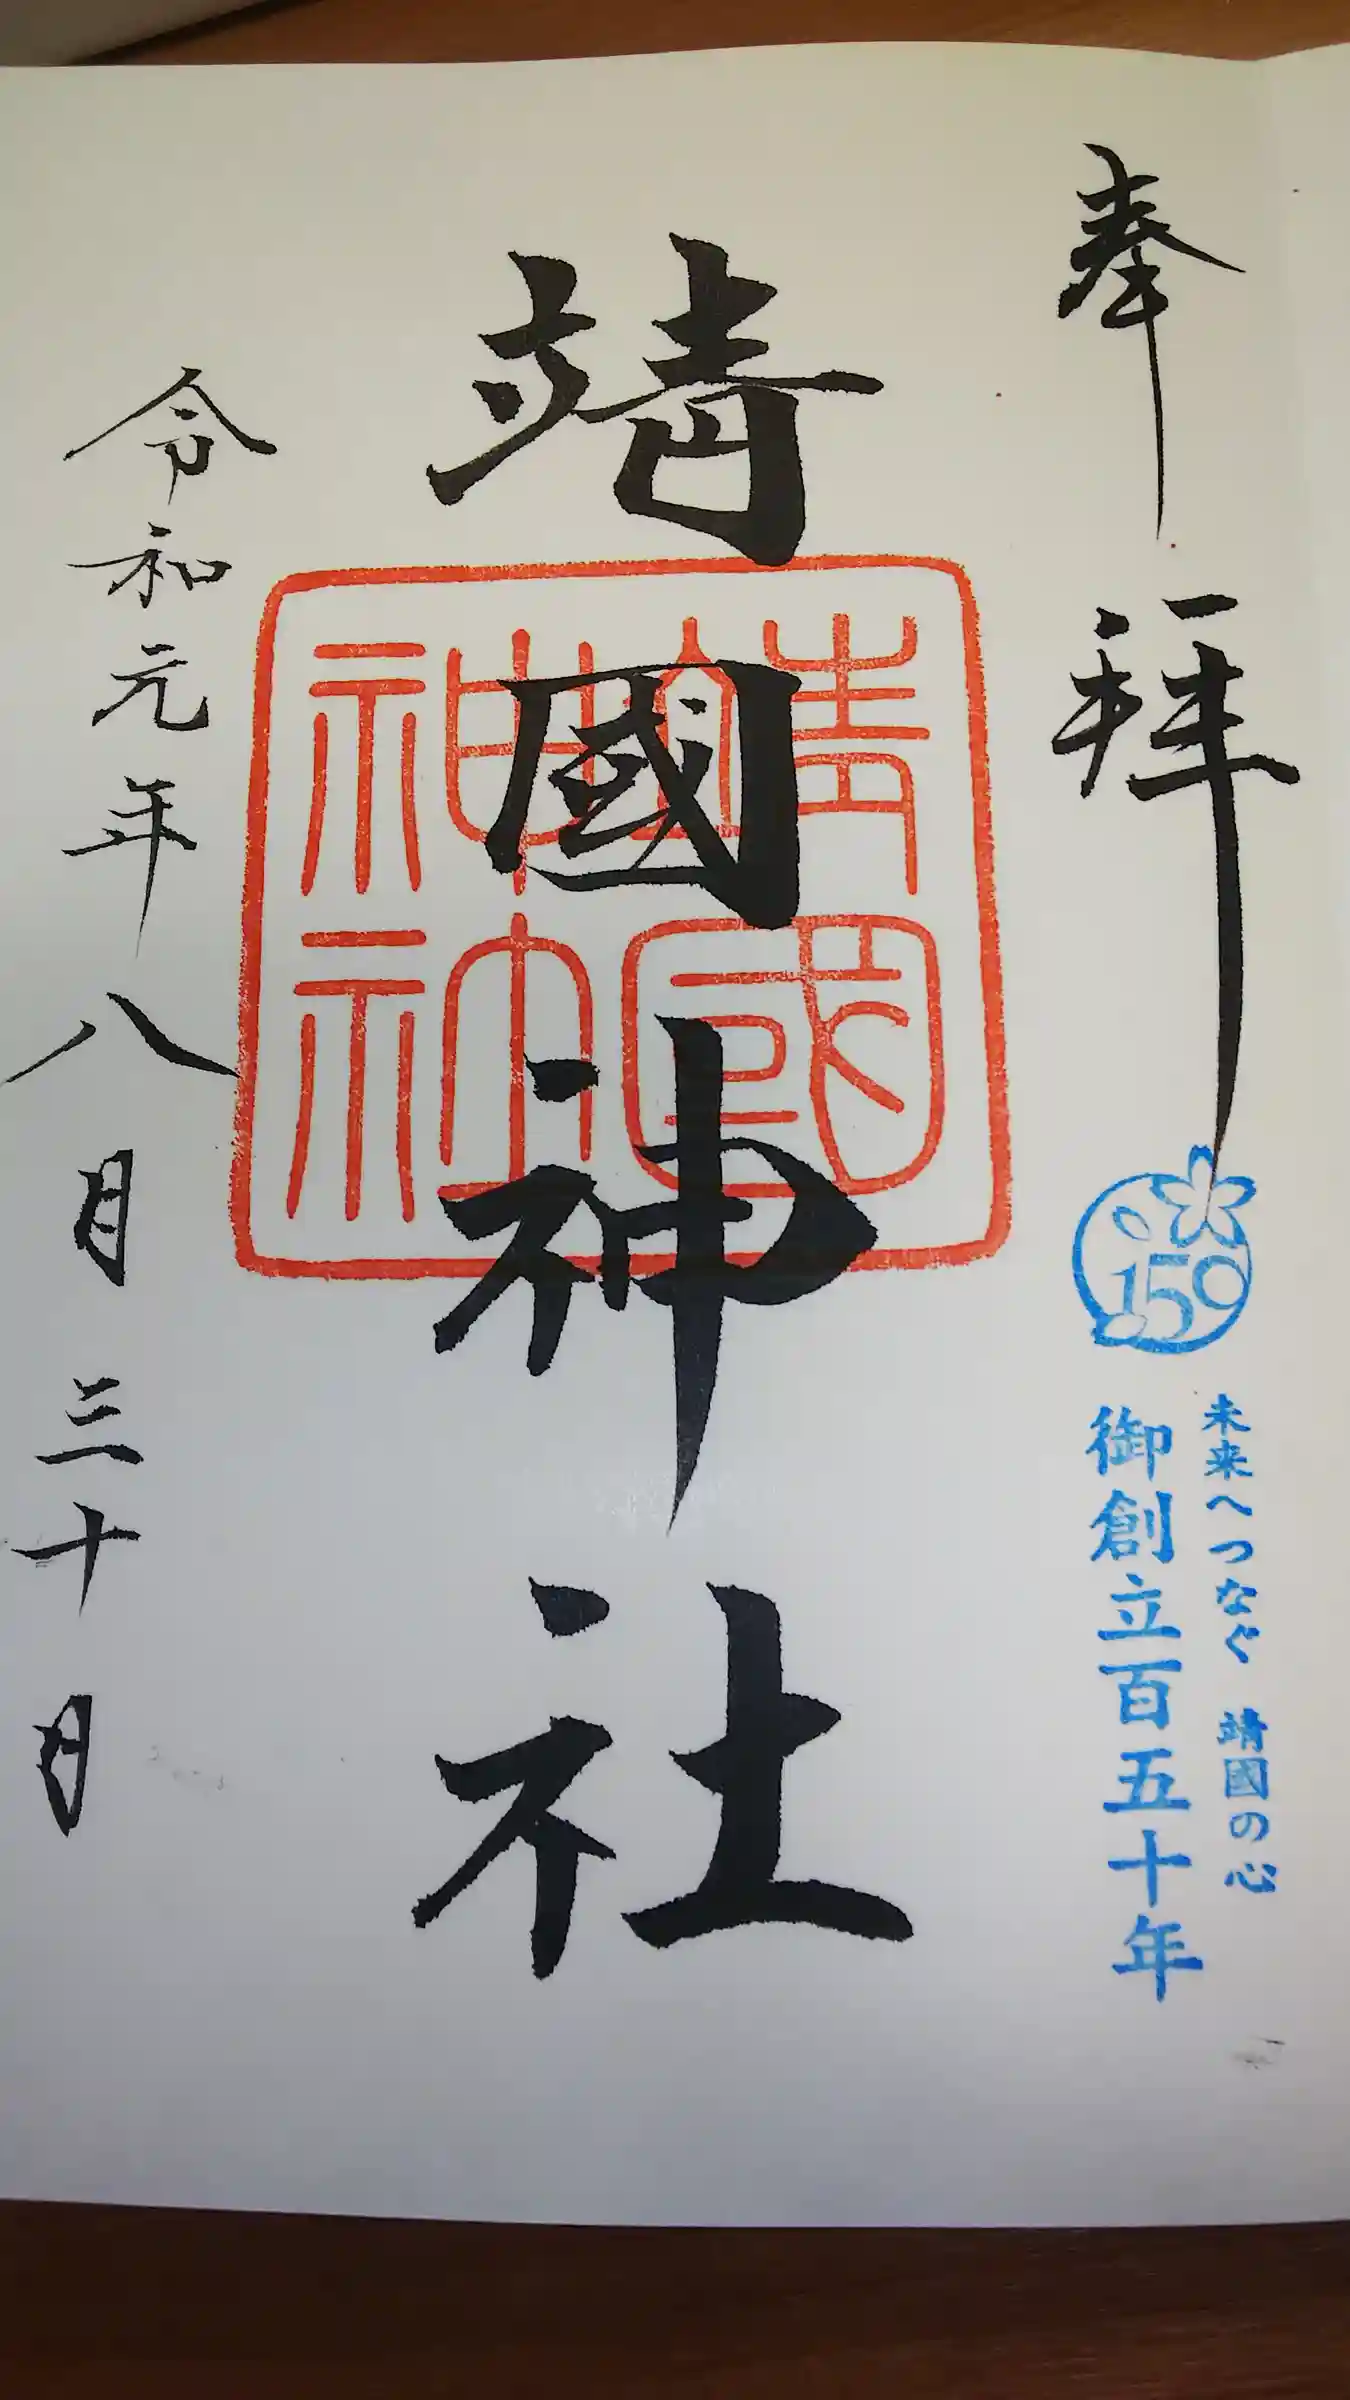 奉拜
150
未来へつなぐ 靖國の心
御創立百五十年
靖國神社
靖國神社
令和元年八月三十日